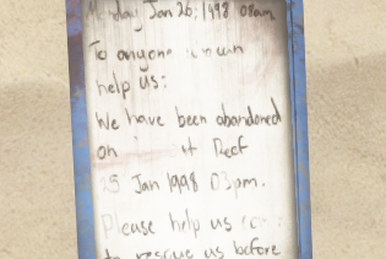 Monday Jan 26; 1998 08am
To anyone can
help us:
We have been abandoned
on Reef
25 Jan 1998 03pm.
Please help us
to rescue us before